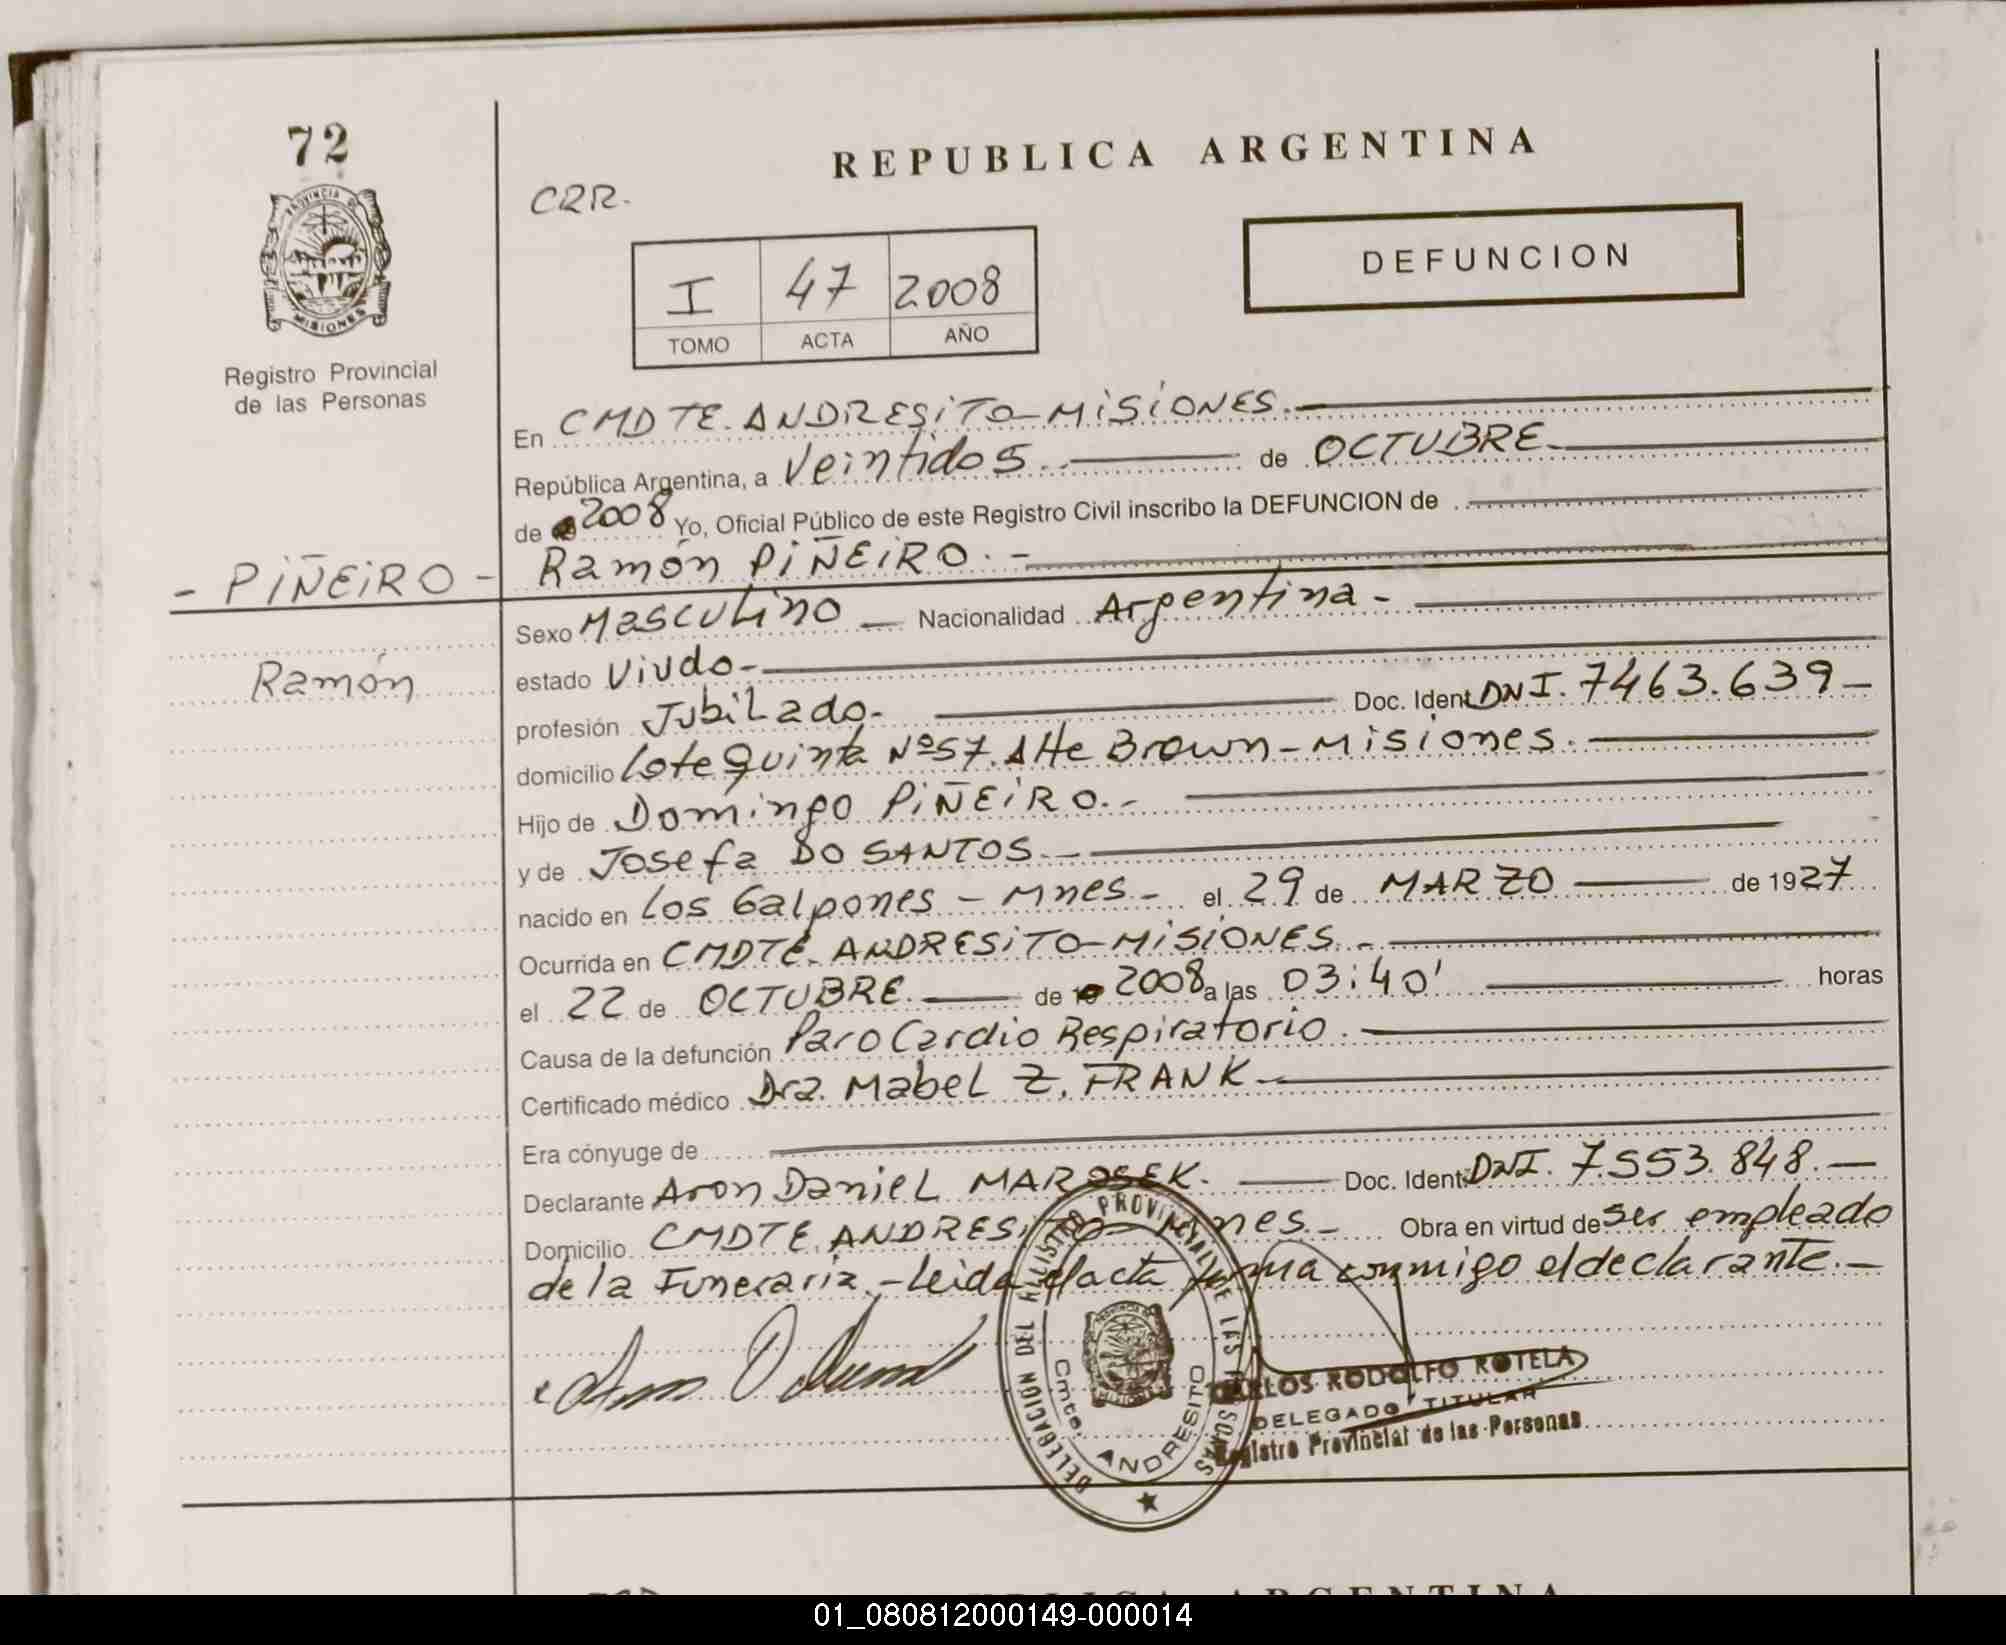 72
PROVINCIA DE
MISIONES
Registro Provincial
de las Personas
REPUBLICA ARGENTINA
CRR.
DEFUNCION
I 47 2008
TOMO ACTA AÑO
En CMDTE. ANDRESITO-MISIONES.
República Argentina, a Veintidos de OCTUBRE
de 2008 Yo, Oficial Público de este Registro Civil inscribo la DEFUNCION de
- PIÑEIRO - Ramón PIÑEIRO.-
Sexo Masculino Nacionalidad Argentina-
Ramón estado Viudo-
profesión Jubilado- Doc. Ident DNI. 7463.639-
domicilio Lote Quinta Nº57. Alte Brown-Misiones.
Hijo de Domingo PIÑEIRO.-
y de Josefa DO SANTOS.-
nacido en Los Galpones - Mnes- el 29 de MARZO de 1927
Ocurrida en CMDTE. ANDRESITO-MISIONES.-
el 22 de OCTUBRE de 2008 a las 03:40' horas
Causa de la defunción Paro Cardio Respiratorio.
Certificado médico Dra. Mabel Z. FRANK-
Era cónyuge de
Declarante Aron Daniel MAROSEK. Doc. Ident DNI. 7.553.848.-
Domicilio CMDTE. ANDRESITO-Mnes.- Obra en virtud de ser empleado
de la Funeraria.-Leida el acta firma conmigo el declarante.-
DELEGACION DEL REGISTRO PROVINCIAL DE LAS PERSONAS
Cmte. ANDRESITO
CARLOS RODOLFO ROTELA
DELEGADO TITULAR
Registro Provincial de las Personas
REPUBLICA ARGENTINA
01_080812000149-000014